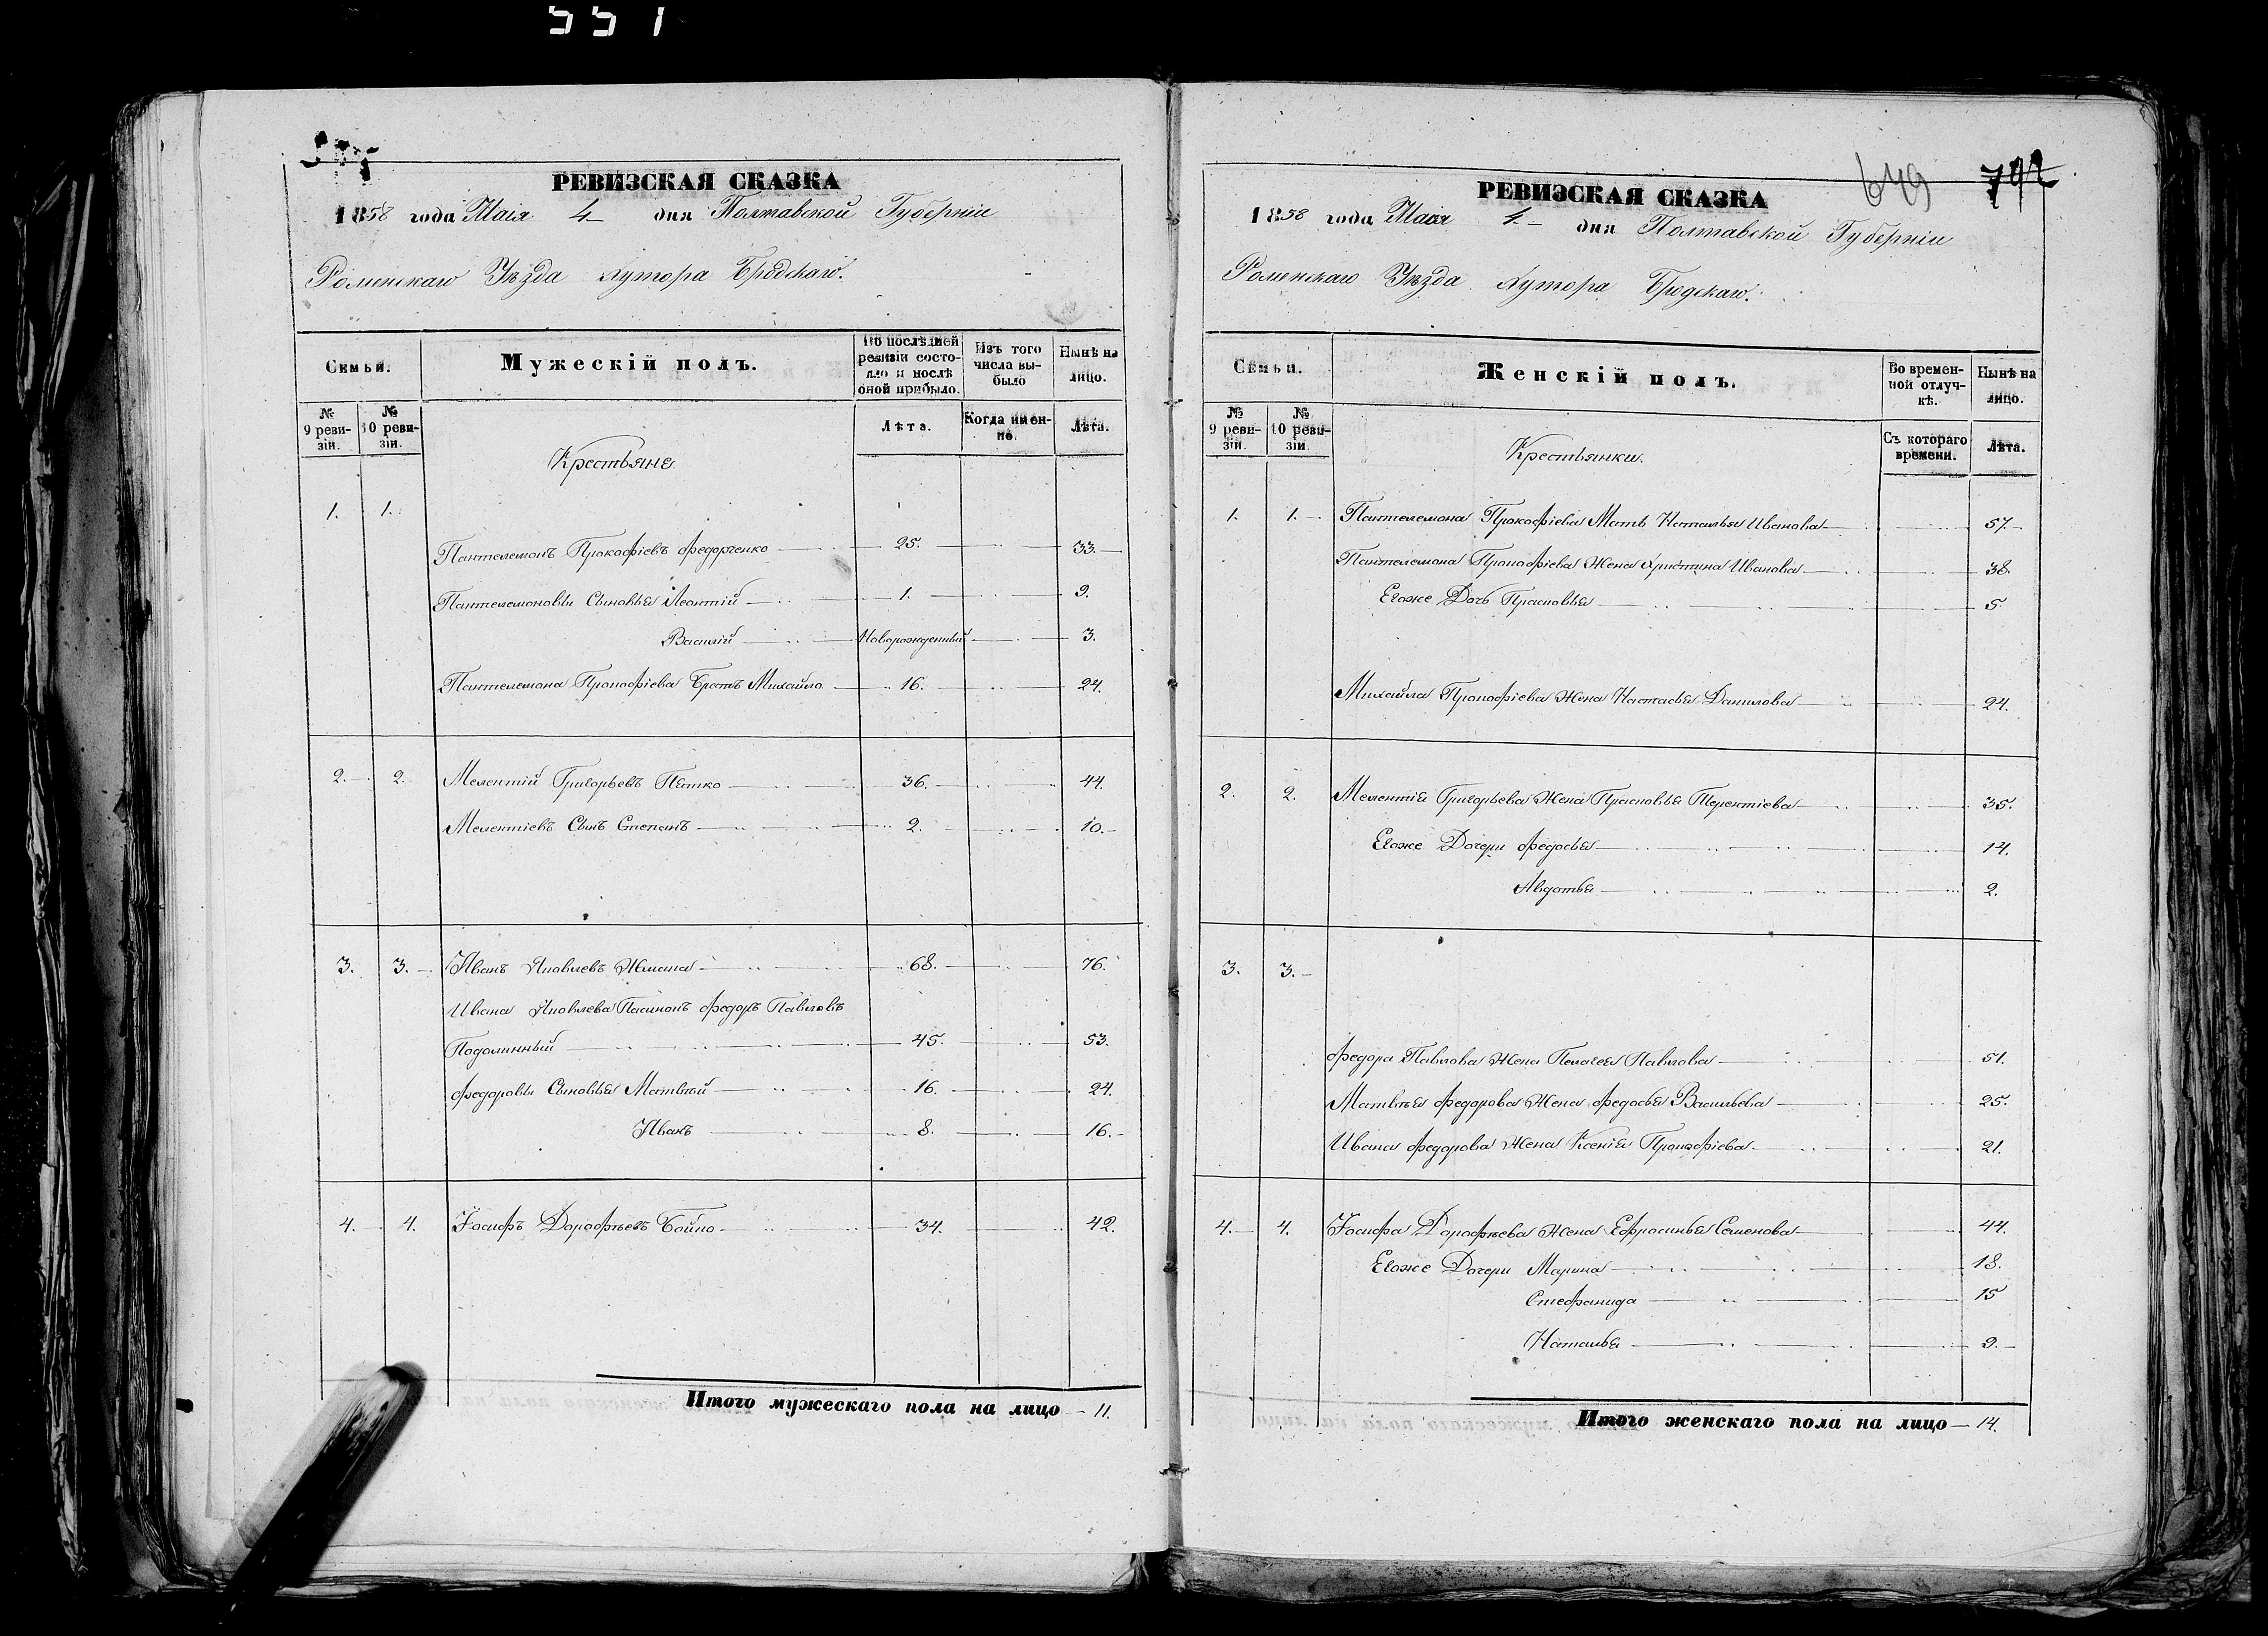 551
РЕВИЗСКАЯ СКАЗКА
1858 года Маія 4 дня Полтавской Губерніи
Роменскаго Уѣзда Хутора Бродскаго.
Семьи.
Мужескій полъ.
По послѣдней ревизіи состояло и послѣ оной прибыло.
Изъ того числа выбыло
Нынѣ на лицо.
№ 9 ревизіи.
№ 10 ревизіи.
Крестьяне.
Лѣта.
Когда именно.
Лѣта.
1. 1.
Пантелемонъ Прокофіевъ Федорченко 25. 33.
Пантелемоновы Сыновья Леонтій 1. 9.
Василій Новорожденный 3.
Пантелемона Прокофіева Братъ Михайло 16. 24.
2. 2. Мелентій Григорьевъ Петко 36. 44.
Мелентіевъ Сынъ Степанъ 2. 10.
3. 3. Иванъ Яковлевъ Жмака 68. 76.
Ивана Яковлева Пасынокъ Федоръ Павловъ
Подолинный 45. 53.
Федоровы Сыновья Матвѣй 16. 24.
Иванъ 8. 16.
4. 4. Іосифъ Дорофѣевъ Бойко 34. 42.
Итого мужескаго пола на лицо 11.
649 742
РЕВИЗСКАЯ СКАЗКА
1858 года Маія 4 дня Полтавской Губерніи
Роменскаго Уѣзда Хутора Бродскаго.
Семьи.
Женскій полъ.
Во временной отлучкѣ.
Нынѣ на лицо.
№ 9 ревизіи.
№ 10 ревизіи.
Крестьянки.
Съ котораго времени.
Лѣта.
1. 1. Пантелемона Прокофіева Мать Наталья Иванова 57.
Пантелемона Прокофіева Жена Христина Иванова 38.
Егоже Дочь Прасковья 5.
Михайла Прокофіева Жена Настасья Данилова 24.
2. 2. Мелентія Григорьева Жена Прасковья Терентіева 35.
Егоже Дочери Федосья 14.
Авдотья 2.
3. 3.
Федора Павлова Жена Пелагея Павлова 51.
Матвѣя Федорова Жена Федосья Васильева 25.
Ивана Федорова Жена Ксенія Прокофіева 21.
4. 4. Іосифа Дорофѣева Жена Ефросинья Семенова 44.
Егоже Дочери Марина 18.
Стефанида 15
Наталья 9.
Итого женскаго пола на лицо 14.